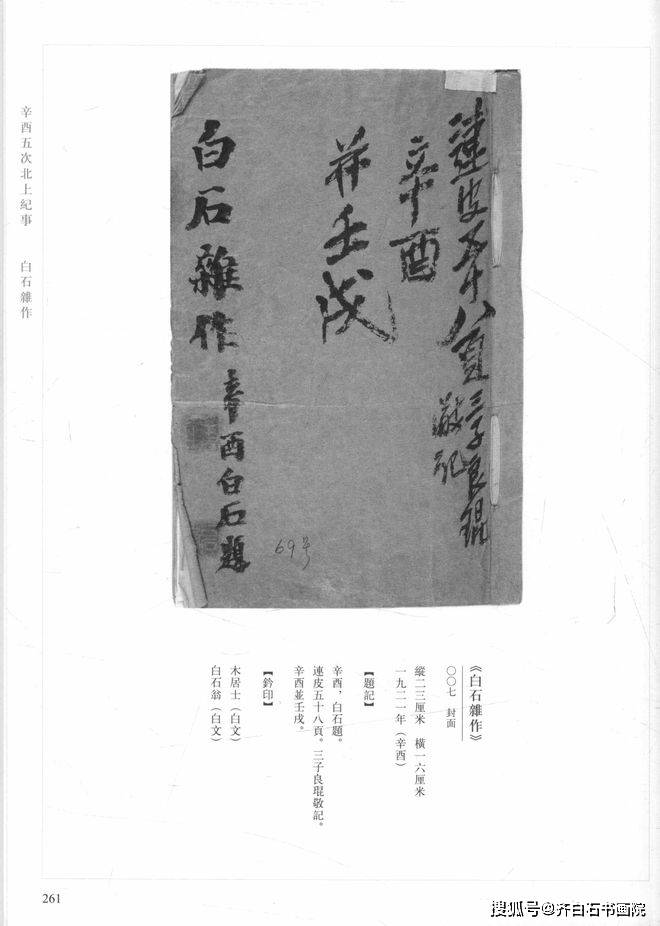 辛酉五次北上紀事　白石雜作
連皮五十八頁三子良琨
敬記
辛酉
並壬戌
白石雜作
辛酉白石題
69号
《白石雜作》
〇〇七　封面
縱二三厘米　橫一六厘米
一九二一年（辛酉）
【題記】
辛酉，白石題。
連皮五十八頁。三子良琨敬記。
辛酉並壬戌。
【鈐印】
木居士（白文）
白石翁（白文）
261
搜狐号@齐白石书画院